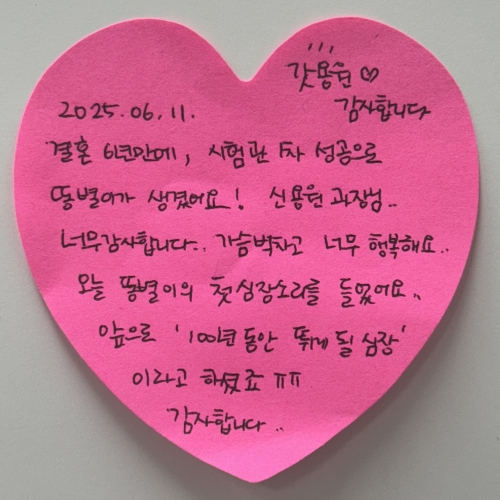 갓용원♡
감사합니다
2025.06.11.
결혼 6년만에, 시험관 1차 성공으로
똥별이가 생겼어요! 신용원 과장님..
너무감사합니다.. 가슴벅차고 너무 행복해요..
오늘 똥별이의 첫 심장소리를 들었어요..
앞으로 '100년 동안 뛰게 될 심장'
이라고 하셨죠 ㅠㅠ
감사합니다..